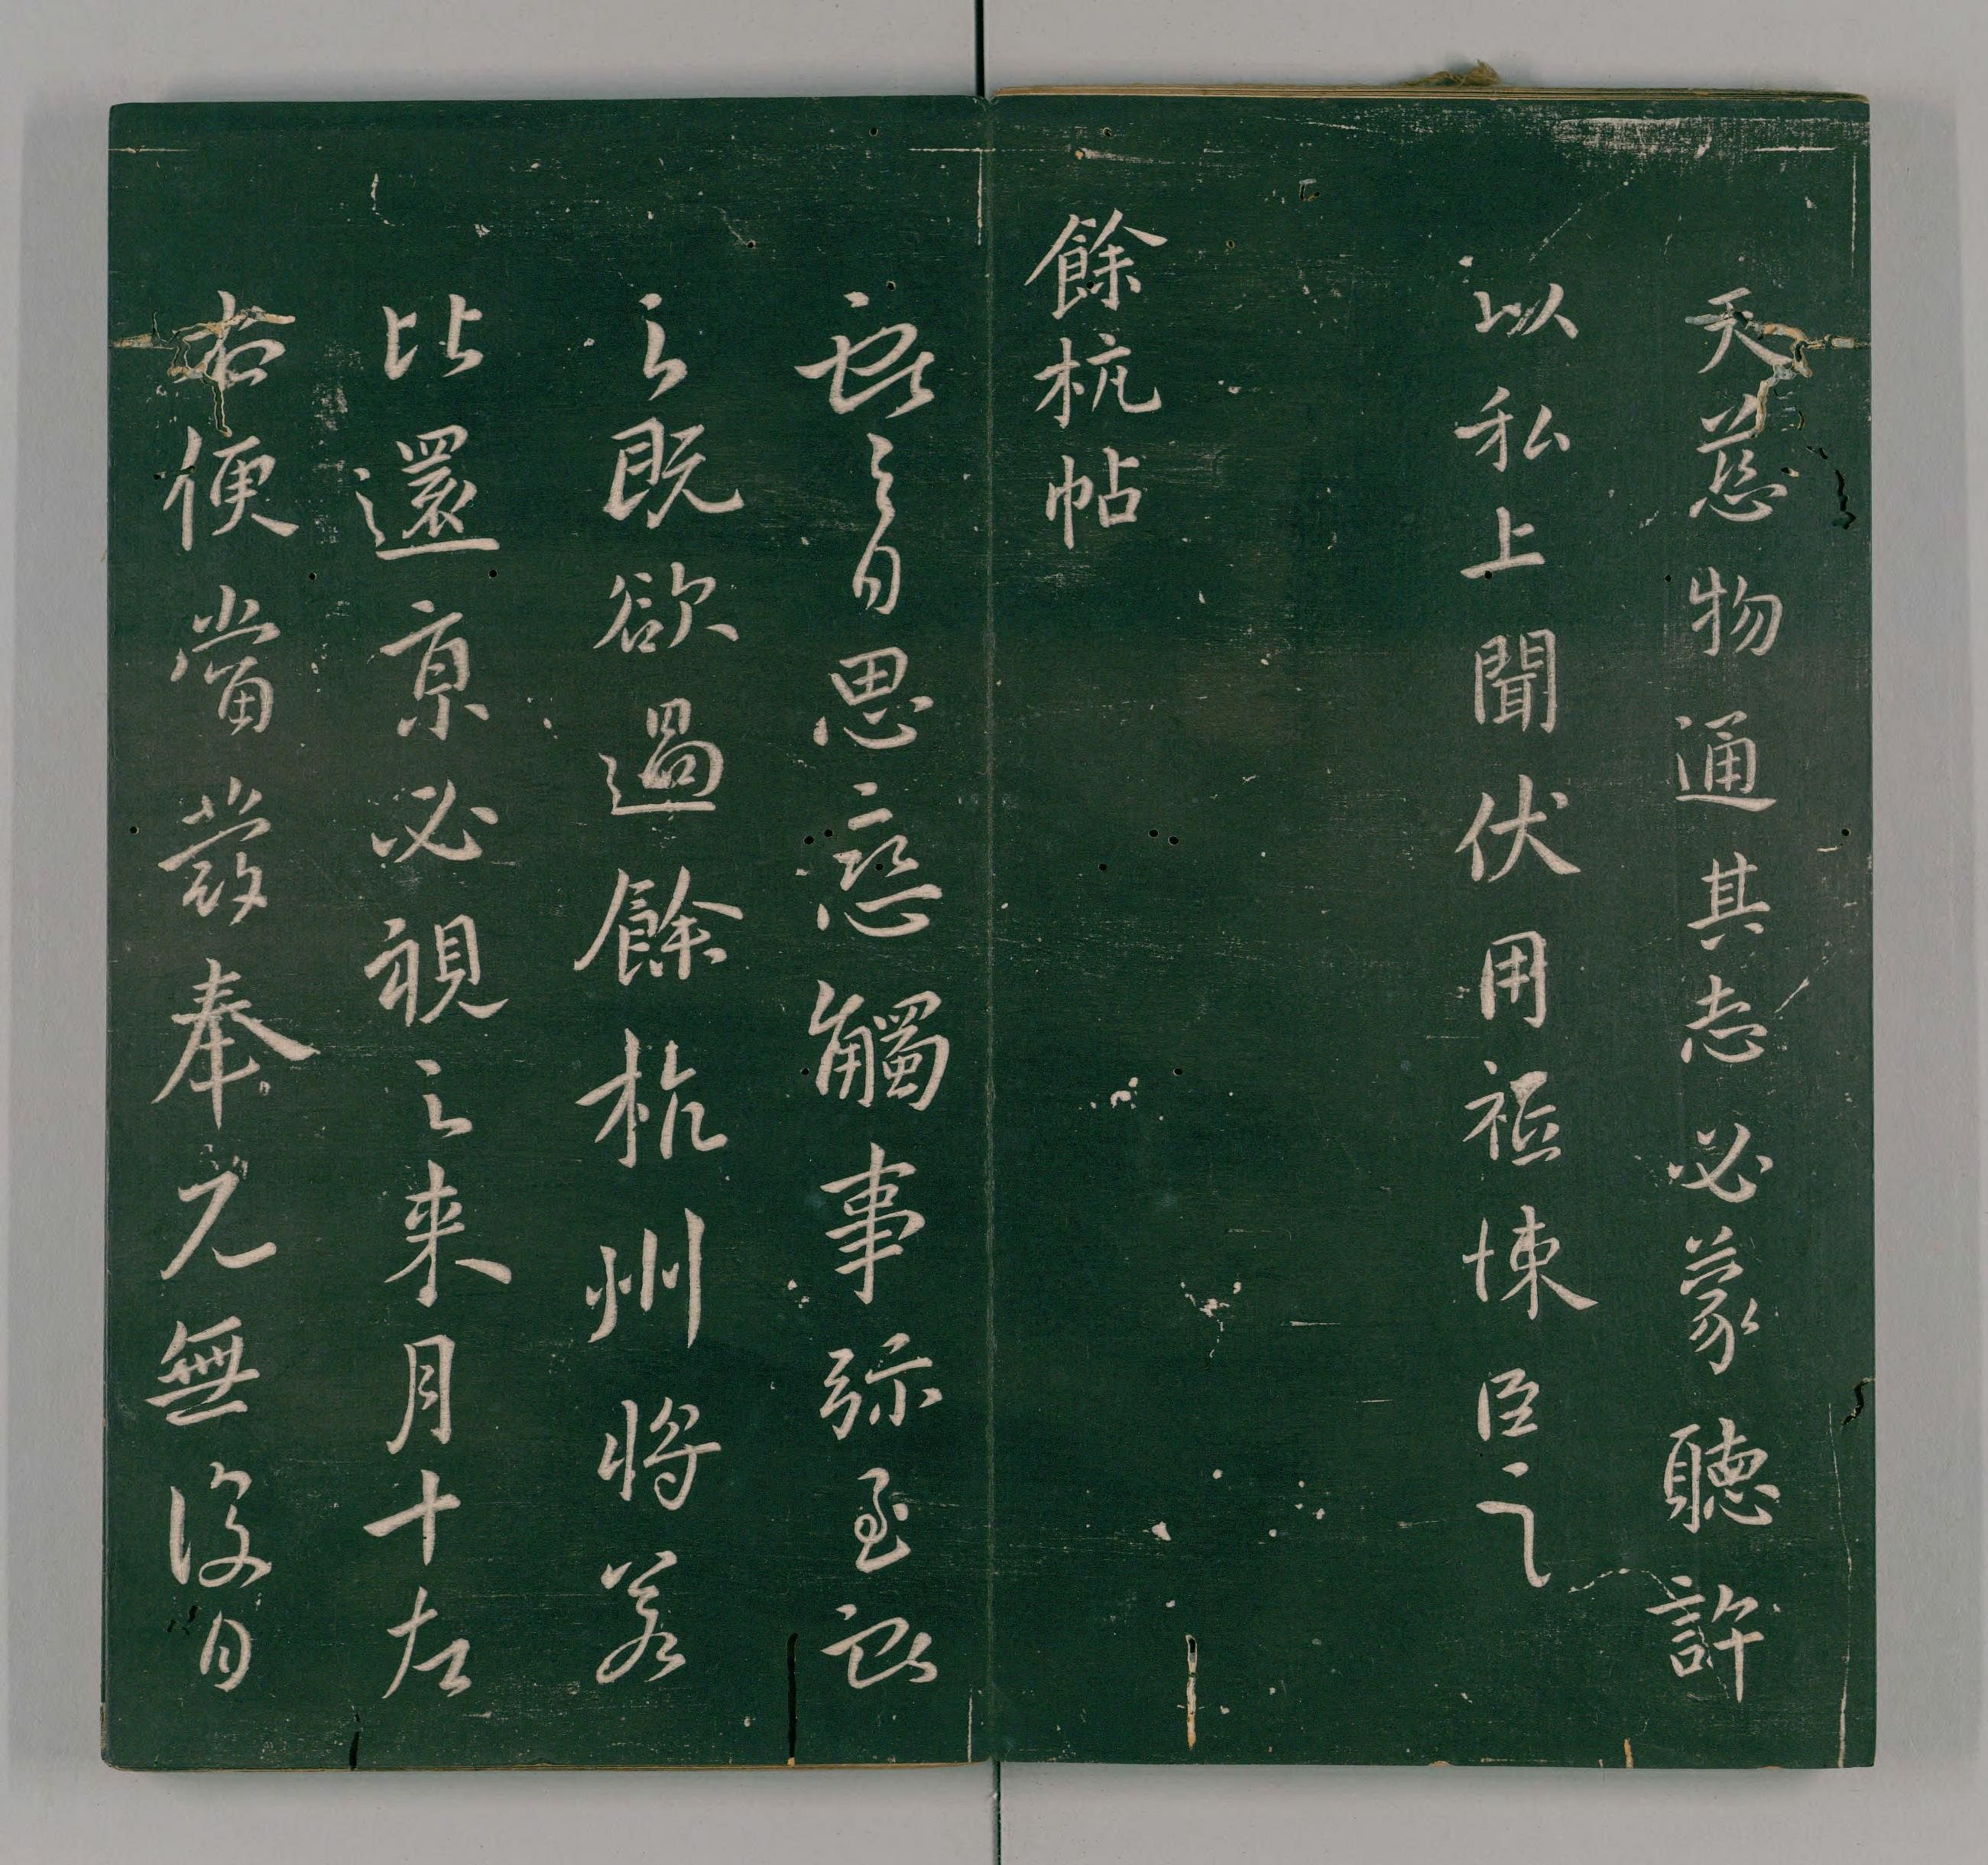 天慈物通其志必蒙聽許
以私上聞伏用祗悚臣之
餘杭帖
獻之白思戀觸事弥至獻
之既欲過餘杭州將若
比還京必視之來月十左
右便當發奉見無復日